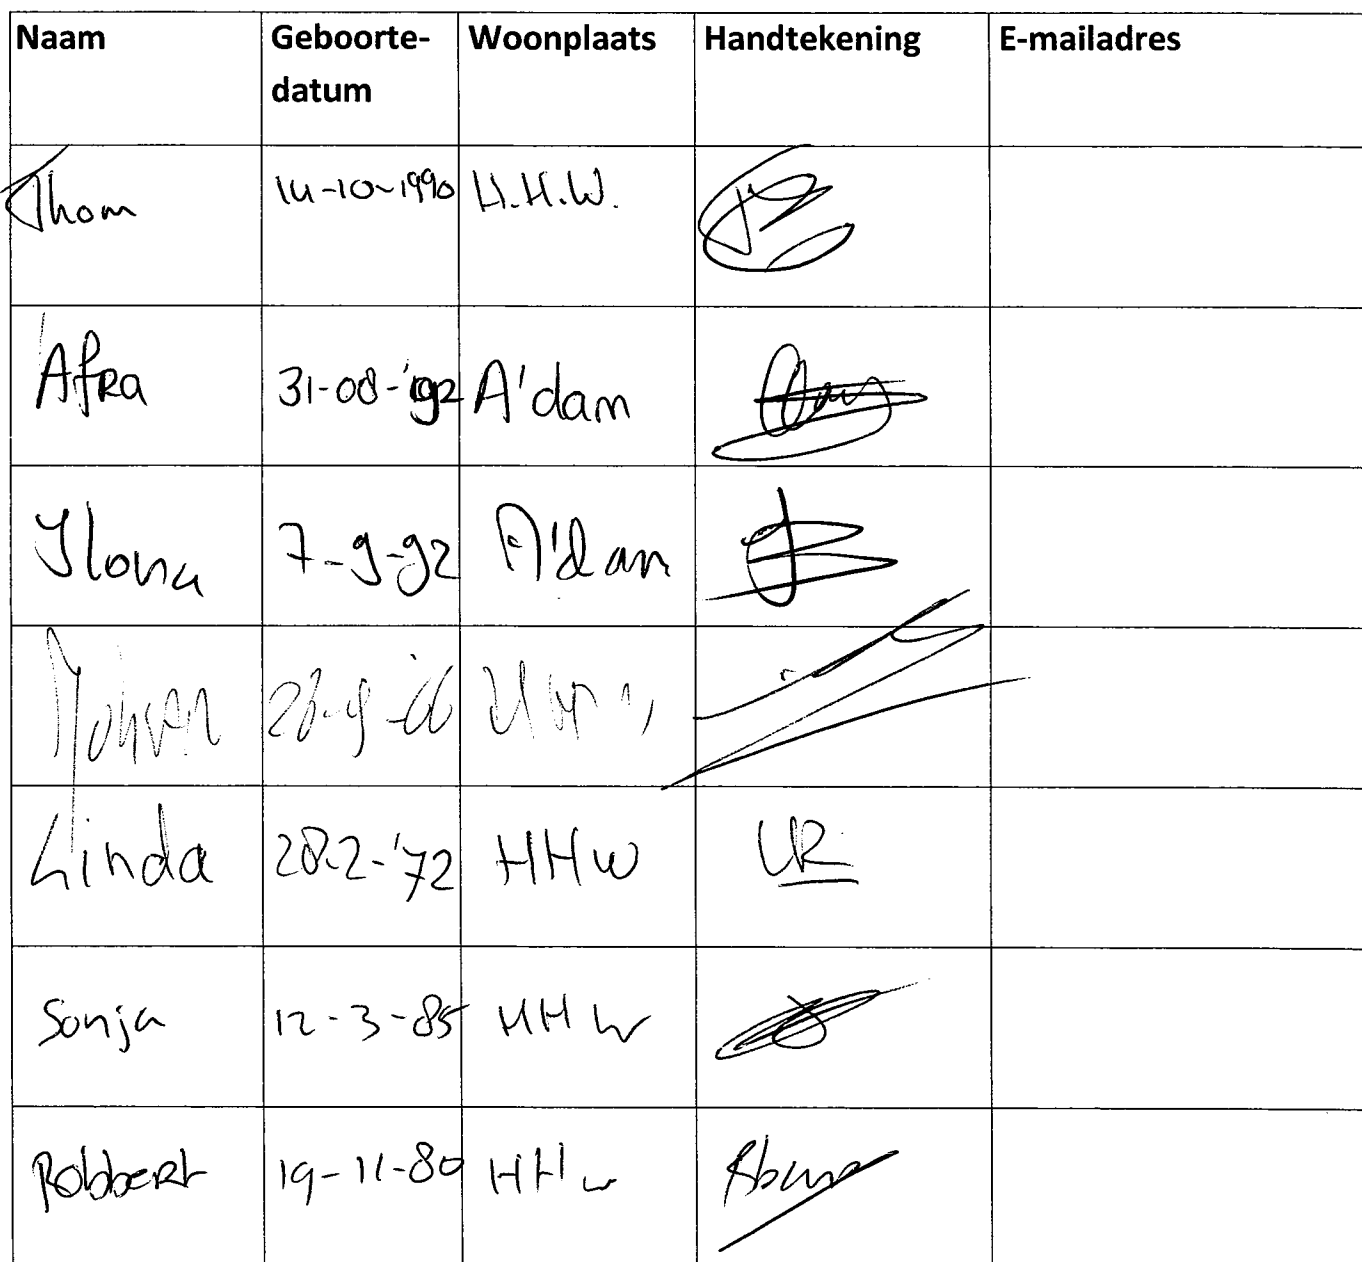 Naam Geboorte- Woonplaats Handtekening E-mailadres
datum
Thom 14-10-1990 H.H.W.
Afra 31-08-'92 A'dam
Ilona 7-9-92 A'dam
Linda 28-2-'72 HHW
Sonja 12-3-85 HHW
Robbert 19-11-80 HHW